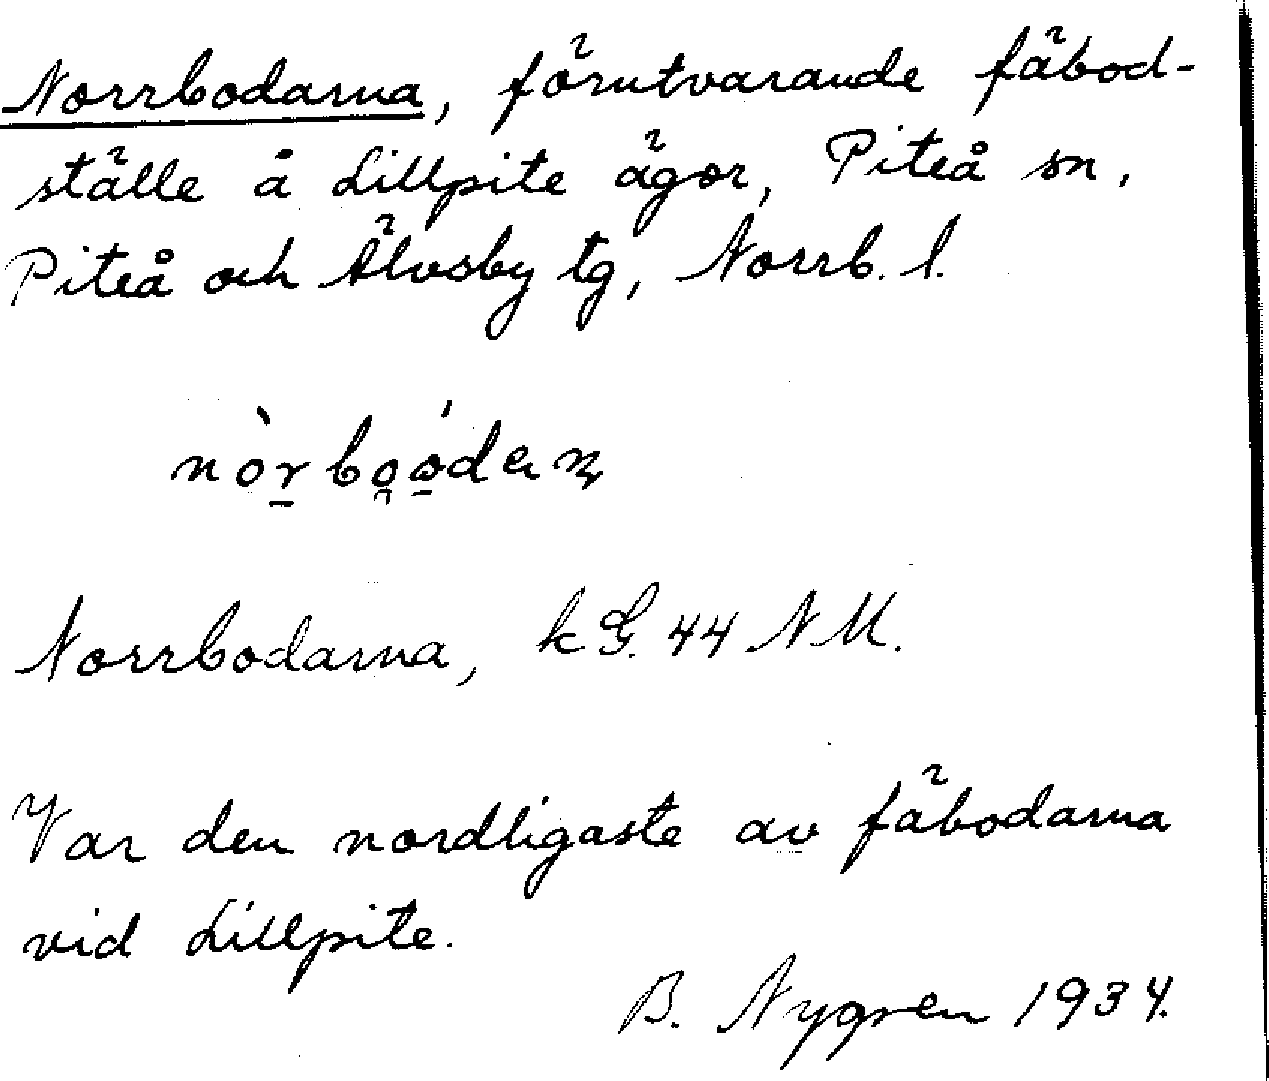 Norrbodarna, förutvarande fäbod-
ställe å Lillpite ägor, Piteå sn,
Piteå och Älvsby tg, Norrb. l.
Norrbodarna, k G. 44 NM.
Var den nordligaste av fäbodarna
vid Lillpite.
B. Nygren 1934.